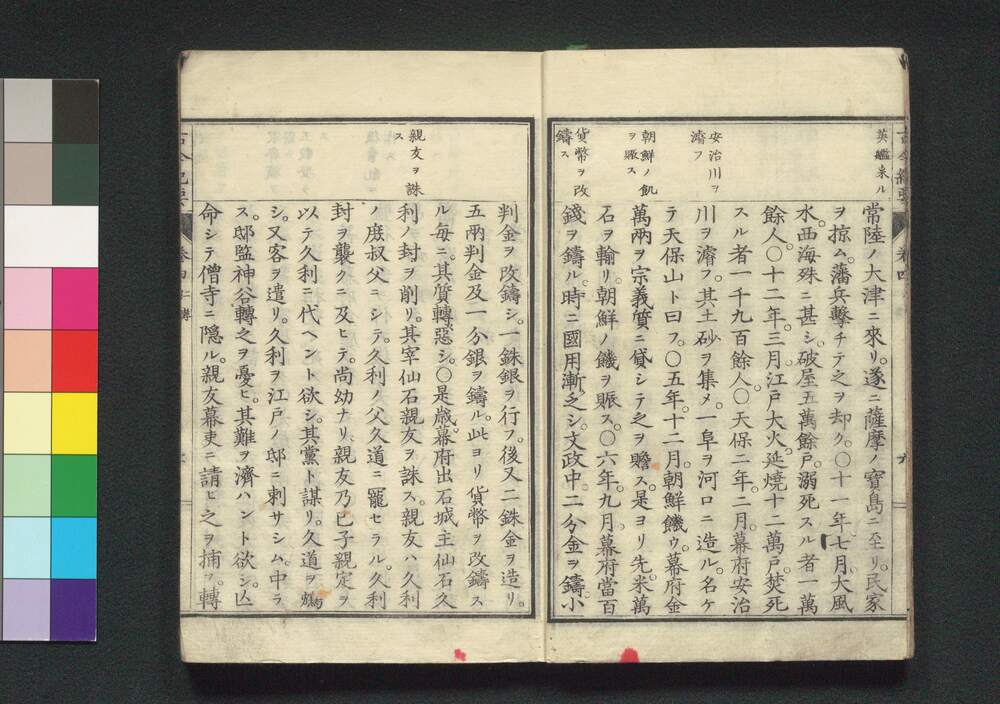 古今紀要
卷四
九
英艦來ル
安治川ヲ
濬フ
朝鮮ノ飢
ヲ賑ス
貨幣ヲ改
鑄ス
常陸ノ大津ニ來リ。遂ニ薩摩ノ寶島ニ至リ。民家
ヲ掠ム。藩兵擊チテ之ヲ却ク。〇十一年。七月。大風
水。西海殊ニ甚シ。破屋五萬餘戸。溺死スル者一萬
餘人。〇十二年。三月。江戸大火。延燒十二萬戸。焚死
スル者一千九百餘人。〇天保二年。二月。幕府安治
川ヲ濬フ。其土砂ヲ集メ。一阜ヲ河口ニ造ル。名ケ
テ天保山ト曰フ。〇五年。十二月。朝鮮饑ウ。幕府金
萬兩ヲ宗義質ニ貸シテ之ヲ贍ス。是ヨリ先。米萬
石ヲ輸リ。朝鮮ノ饑ヲ賑ス。〇六年。九月。幕府當百
錢ヲ鑄ル。時ニ國用漸乏シ。文政中。二分金ヲ鑄。小
判金ヲ改鑄シ。一銖銀ヲ行フ。後又二銖金ヲ造リ。
五兩判金及一分銀ヲ鑄ル。此ヨリ貨幣ヲ改鑄ス
ル每ニ。其質轉惡シ。〇是歳。幕府出石城主仙石久
利ノ封ヲ削リ。其宰仙石親友ヲ誅ス。親友ハ久利
ノ庶叔父ニシテ。久利ノ父久道ニ寵セラル。久利
封ヲ襲クニ及ヒテ。尚幼ナリ。親友乃己子親定ヲ
以テ久利ニ代ヘント欲シ。其黨ト謀リ。久道ヲ鴆
シ。又客ヲ遣リ。久利ヲ江戸ノ邸ニ刺サシム。中ラ
ス。邸監神谷轉之ヲ憂ヒ。其難ヲ濟ハント欲シ。亡
命シテ僧寺ニ隱ル。親友幕吏ニ請ヒ之ヲ捕フ。轉
親友ヲ誅
ス
古今紀要
卷四